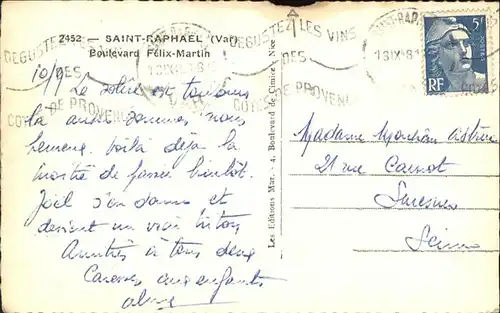 2452 — SAINT-RAPHAEL (Var)
Boulevard Félix-Martin
DEGUSTEZ LES VINS
DES
COTES DE PROVENCE
DEGUSTEZ LES VINS
DES
COTES DE PROVENCE
5F
RF
10/9 Le soleil est toujours
là aussi sommes nous
heureux. Voilà déjà la
moitié de passée bientôt.
Joël s'en donne et
devient un vrai triton
Amitiés à tous deux
Caresses aux enfants
Les Editions Mar. - 4, Boulevard de Cimiez - Nice
Madame
21 rue Carnot
Suresnes
Seine